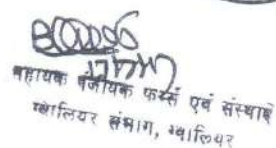 सहायक पंजीयक फर्म्स एवं संस्थाएं
ग्वालियर संभाग, ग्वालियर